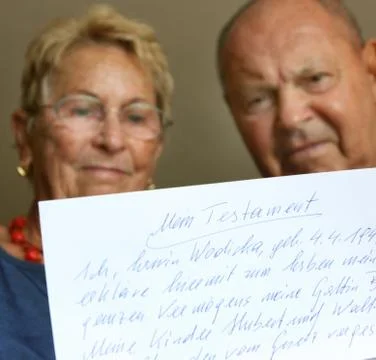 Mein Testament
Ich, Erwin Wodicka, geb. 4.4.194
erkläre hiermit zum Erben mein
ganzen Vermögens meine Gattin
Meine Kinder Hubert und Walt
den vom Gesetz vorges